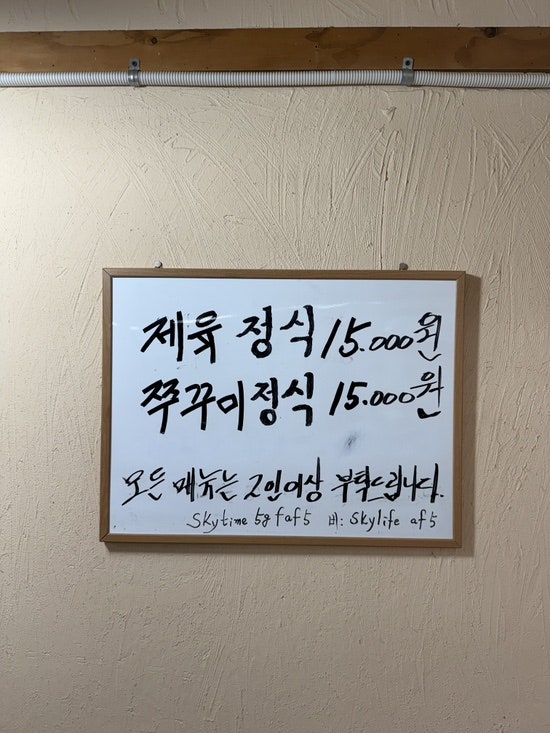 제육 정식 15.000원
쭈꾸미정식 15.000원
모든 메뉴는 2인이상 부탁드립니다.
Skytime 5g faf5 비: Skylife af5